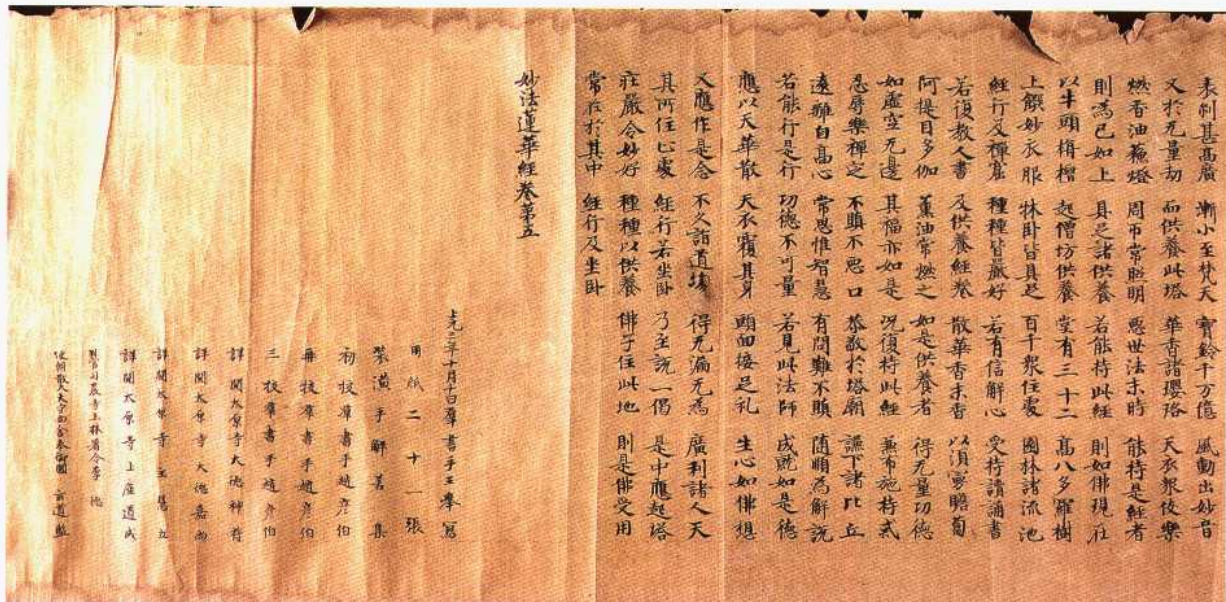 表刹甚高廣 漸小至梵天 寶鈴千万億 風動出妙音
又於无量劫 而供養此塔 華香諸瓔珞 天衣衆伎樂
燃香油蘇燈 周帀常照明 惡世法末時 能持是經者
則為已如上 具足諸供養 若能持此經 則如佛現在
以牛頭栴檀 起僧坊供養 堂有三十二 高八多羅樹
上饌妙衣服 牀卧皆具足 百千衆住處 園林諸流池
經行及禪窟 種種皆嚴好 若有信解心 受持讀誦書
若復教人書 及供養經卷 散華香末香 以須曼瞻蔔
阿提目多伽 薰油常燃之 如是供養者 得无量功德
如虛空无邊 其福亦如是 況復持此經 兼布施持戒
忍辱樂禪定 不瞋不惡口 恭敬於塔廟 謙下諸比丘
遠離自高心 常思惟智慧 有問難不瞋 隨順為解說
若能行是行 功德不可量 若見此法師 成就如是德
應以天華散 天衣覆其身 頭面接足礼 生心如佛想
又應作是念 不久詣道場 得无漏无為 廣利諸人天
其所住止處 經行若坐卧 乃至說一偈 是中應起塔
莊嚴令妙好 種種以供養 佛子住此地 則是佛受用
常在於其中 經行及坐卧
妙法蓮華經卷第五
上元三年十月十日羣書手王舉寫
用紙二十一張
裝潢手解善集
初校羣書手趙彥伯
再校羣書手趙彥伯
三校羣書手趙彥伯
詳閱太原寺大德神符
詳閱太原寺大德嘉尚
詳閱太原寺主慧立
詳閱太原寺上座道成
判官司農寺上林署令李德
使朝散大夫守尚舍奉御閻玄道監